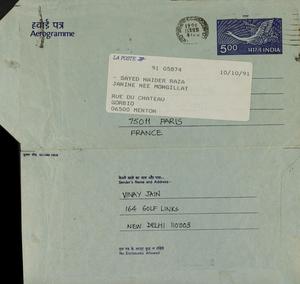 हवाई पत्र
Aerogramme
LA POSTE
91 05874
10/10/91
- SAYED HAIDER RAZA
JANINE NEE MONGILLAT
RUE DU CHATEAU
GORBIO
06500 MENTON
75011 PARIS
FRANCE
5.00
भारत INDIA
भेजने वाले का नाम और पता :-
Sender's Name and Address :-
VINAY JAIN
164 GOLF LINKS
NEW DELHI 110003
इस पत्र के अन्दर कुछ न रखिये
No Enclosures Allowed